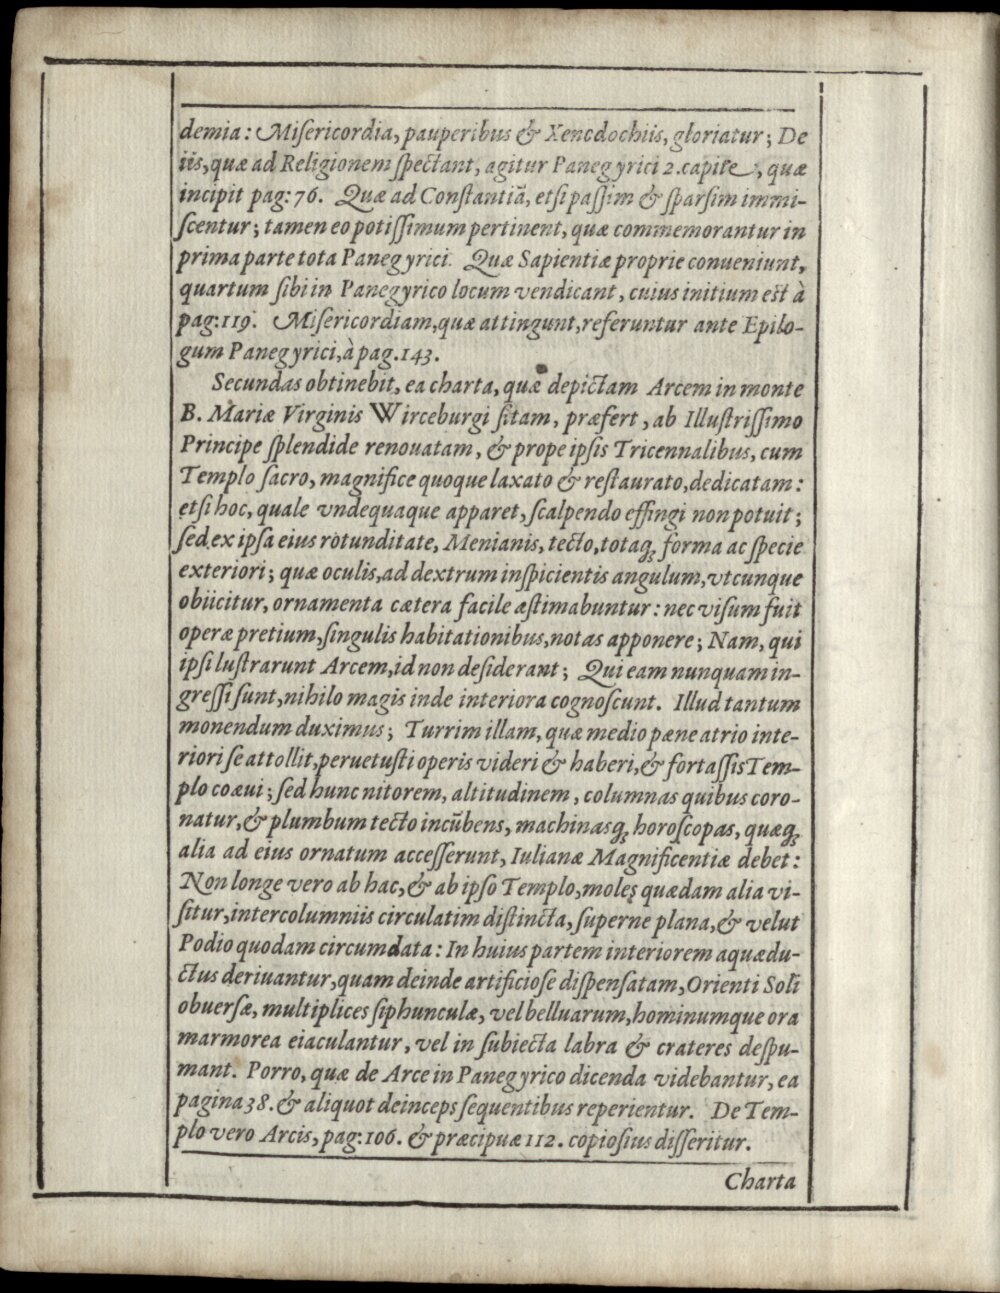 demia: Miſericordia, pauperibus & Xenodochiis, gloriatur; De
iis, quæ ad Religionem ſpectant, agitur Panegyrici 2. capite, quæ
incipit pag: 76. Quæ ad Conſtantiā, etſi paſſim & ſparſim immi-
ſcentur; tamen eo potiſſimum pertinent, quæ commemorantur in
prima parte tota Panegyrici. Quæ Sapientiæ proprie conueniunt,
quartum ſibi in Panegyrico locum vendicant, cuius initium est à
pag: 119. Miſericordiam, quæ attingunt, referuntur ante Epilo-
gum Panegyrici, à pag. 143.
Secundas obtinebit, ea charta, quæ depictam Arcem in monte
B. Mariæ Virginis Wirceburgi ſitam, præfert, ab Illuſtriſſimo
Principe ſplendide renouatam, & prope ipſis Tricennalibus, cum
Templo ſacro, magnifice quoque laxato & reſtaurato, dedicatam:
etſi hoc, quale vndequaque apparet, ſcalpendo effingi non potuit;
ſed ex ipſa eius rotunditate, Menianis, tecto, totaq́; forma ac ſpecie
exteriori; quæ oculis, ad dextrum inſpicientis angulum, vtcunque
obiicitur, ornamenta cætera facile æſtimabuntur: nec viſum fuit
operæ pretium, ſingulis habitationibus, notas apponere; Nam, qui
ipſi luſtrarunt Arcem, id non deſiderant; Qui eam nunquam in-
greſſi ſunt, nihilo magis inde interiora cognoſcunt. Illud tantum
monendum duximus; Turrim illam, quæ medio pæne atrio inte-
riori ſe attollit, peruetuſti operis videri & haberi, & fortaſſis Tem-
plo coæui; ſed hunc nitorem, altitudinem, columnas quibus coro-
natur, & plumbum tecto incūbens, machinasq́; horoſcopas, quæq́;
alia ad eius ornatum acceſſerunt, Iulianæ Magnificentiæ debet:
Non longe vero ab hac, & ab ipſo Templo, moles quædam alia vi-
ſitur, intercolumniis circulatim diſtincta, ſuperne plana, & velut
Podio quodam circumdata: In huius partem interiorem aquædu-
ctus deriuantur, quam deinde artificioſe diſpenſatam, Orienti Soli
obuerſæ, multiplices ſiphunculæ, vel belluarum, hominumque ora
marmorea eiaculantur, vel in ſubiecta labra & crateres deſpu-
mant. Porro, quæ de Arce in Panegyrico dicenda videbantur, ea
pagina 38. & aliquot deinceps ſequentibus reperientur. De Tem-
plo vero Arcis, pag: 106. & præcipuæ 112. copioſius diſſeritur.
Charta